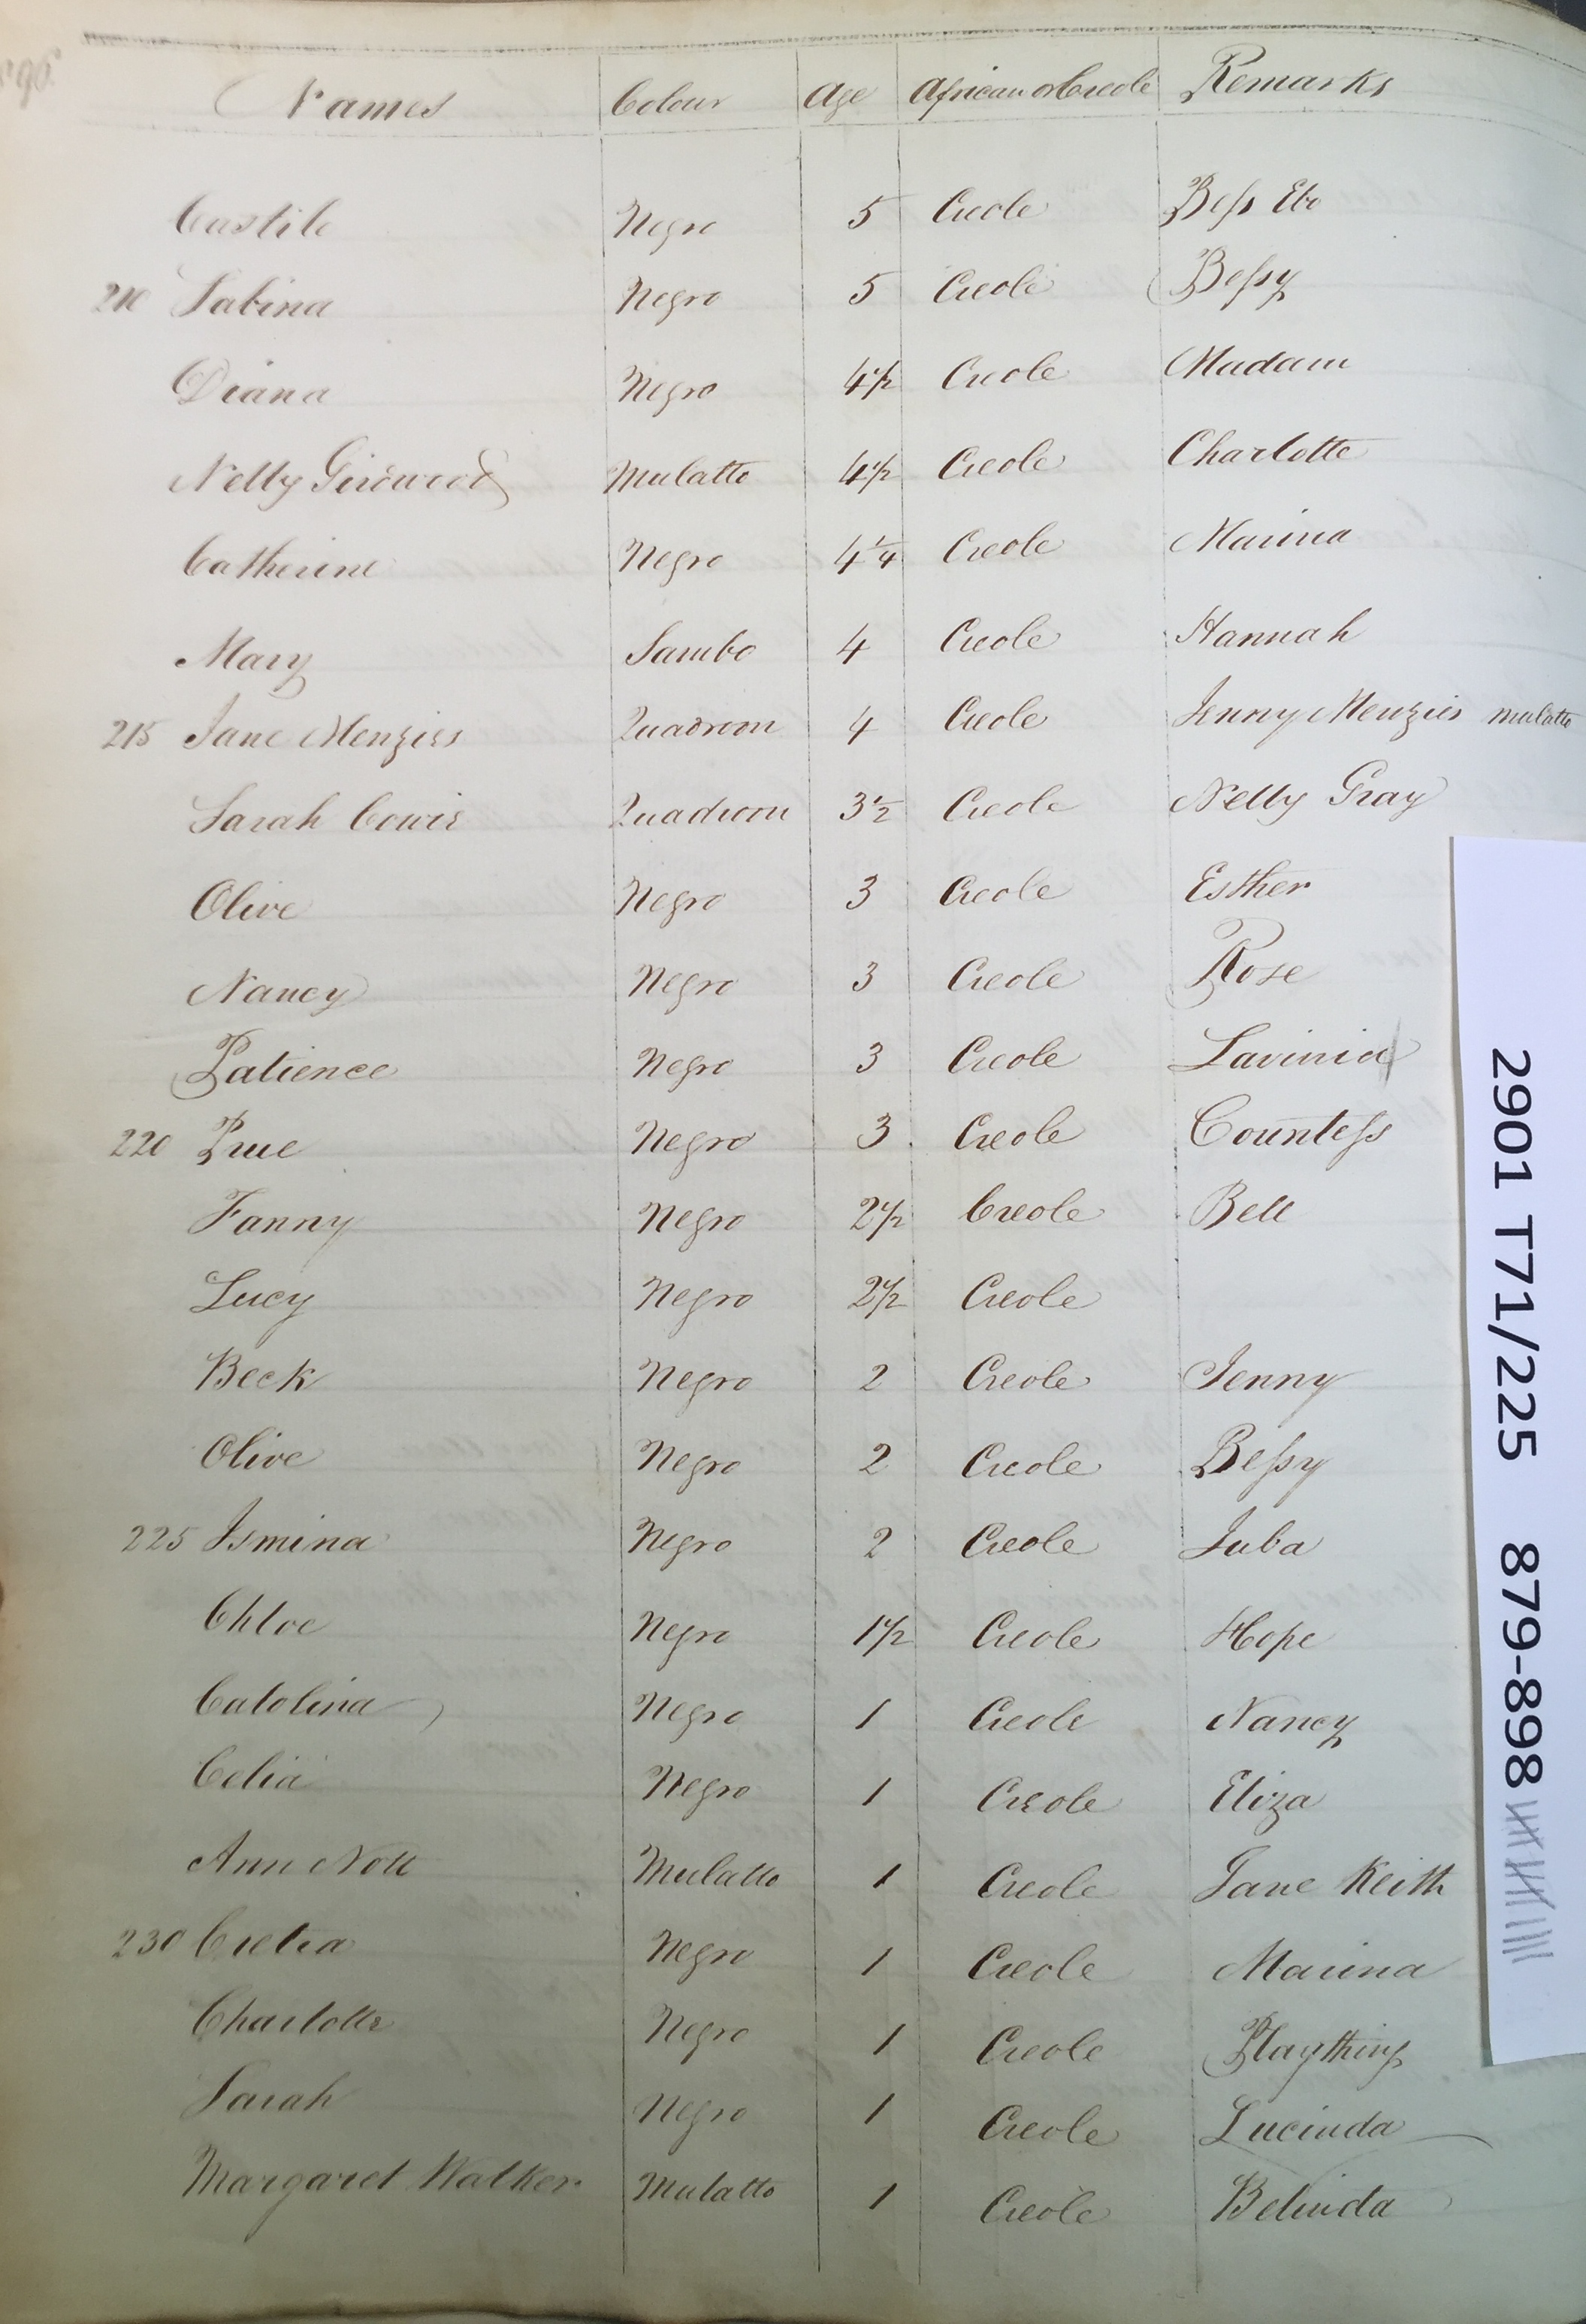 Names Colour Age African or Creole Remarks
Castile Negro 5 Creole Bess Ebo
210 Sabina Negro 5 Creole Bessy
Diana Negro 4 1/2 Creole Madam
Nelly Girdwood Mulatto 4 1/2 Creole Charlotte
Catherine Negro 4 1/4 Creole Marina
Mary Sambo 4 Creole Hannah
215 Jane Menzies Quadroon 4 Creole Jenny Menzies mulatto
Sarah Cowie Quadroon 3 1/2 Creole Nelly Gray
Olive Negro 3 Creole Esther
Nancy Negro 3 Creole Rose
Patience Negro 3 Creole Lavinia
220 Prue Negro 3 Creole Countess
Fanny Negro 2 1/2 Creole Bell
Lucy Negro 2 1/2 Creole
Beck Negro 2 Creole Jenny
Olive Negro 2 Creole Bessy
225 Ismina Negro 2 Creole Juba
Chloe Negro 1 1/2 Creole Hope
Catolina Negro 1 Creole Nancy
Celia Negro 1 Creole Eliza
Ann Nott Mulatto 1 Creole Jane Keith
230 Cretia Negro 1 Creole Marina
Charlotte Negro 1 Creole Plaything
Sarah Negro 1 Creole Lucinda
Margaret Walker Mulatto 1 Creole Belinda
2901 T71/225 879-898